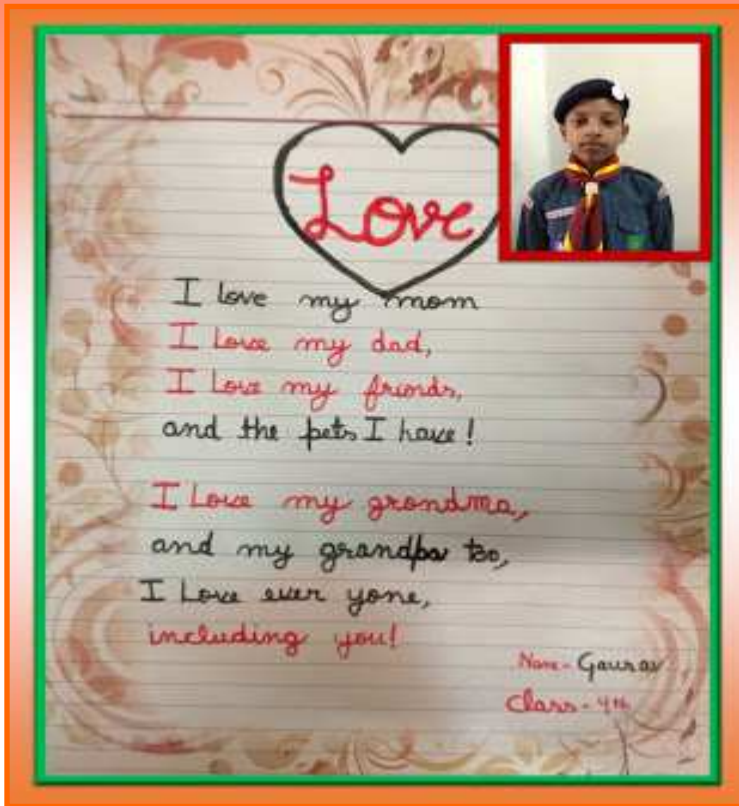 Love
I love my mom
I Love my dad,
I Love my friends,
and the pets I have!
I Love my grondma,
and my grandpa too,
I Love ever yone,
including you!
Name - Gaurav
Class - 4th